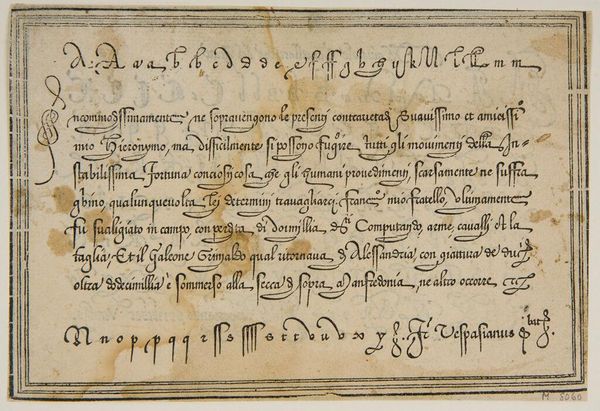 A A a a b b c d d d e e f f g b h y s k l l k m m
ncommodissimamente ne sopravengono le presenti Suavissimo et amicissi
mio Hieronymo, ma difficilmente si possono fugire tutti gli movimenti della In=
stabilissima Fortuna conciosycosa che gli humani provedimenti scarsamente ne suffra
ghino, qualunque volta Lej determini travagliarci. mio fratello, ultimamente
fù svaligiato in campo, con perdita di doimillia Computando arme, cavalli, et la
taglia, Et il Galeone Grimaldo qual ritornava d'Alessandria, con giattura de
oltra dodecimillia è sommerso alla secca di sopra a Manfredonia, ne altro occorre
N n o p p q q r s s e s t t v u v x y Vespasianus
M 8060